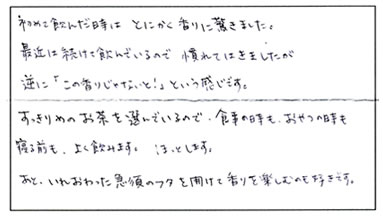 初めて飲んだ時は とにかく香りに驚きました。
最近は続けて飲んでいるので 慣れてはきましたが
逆に「この香りじゃないと!」という感じです。
すっきりめのお茶を選んでいるので、食事の時も、おやつの時も
寝る前も、よく飲みます。 ほっとします。
あと、いれおわった急須のフタを開けて香りを楽しむのも好きです。